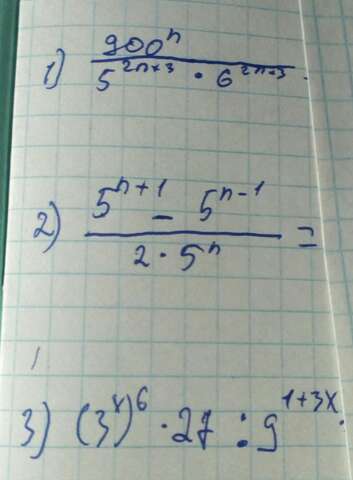 1) 900ⁿ / 5²ⁿ⁺³ · 6²ⁿ⁺³
2) 5ⁿ⁺¹ - 5ⁿ⁻¹ / 2 · 5ⁿ =
3) (3ˣ)⁶ · 27 : 9¹⁺³ˣ.